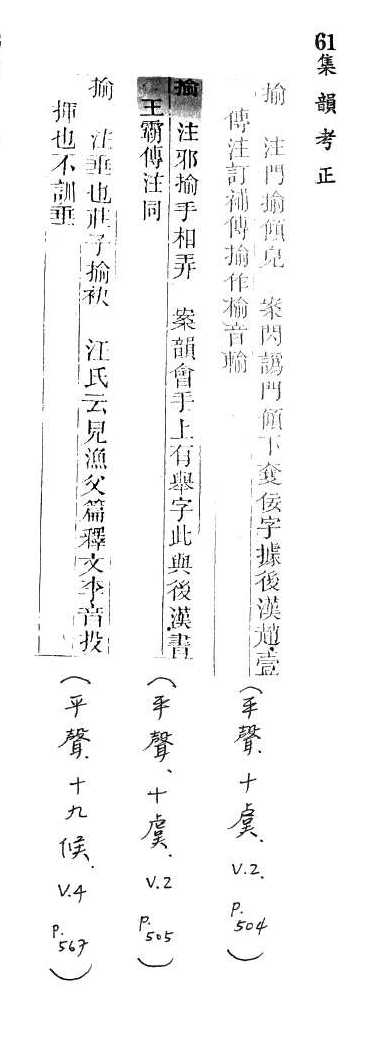 61 集韻考正
揄 注門揄傾皃 案閃譌門傾下奪佞字據後漢趙壹
傳注訂補傳揄作榆音輸
揄 注邪揄手相弄 案韻會手上有舉字此與後漢書
王霸傳注同
揄 注垂也莊子揄袂 江氏云見漁父篇釋文李音投
揮也不訓垂
(平聲、十虞、V.2. P.504)
(平聲、十虞、V.2 P.505)
(平聲、十九侯、V.4 P.567)